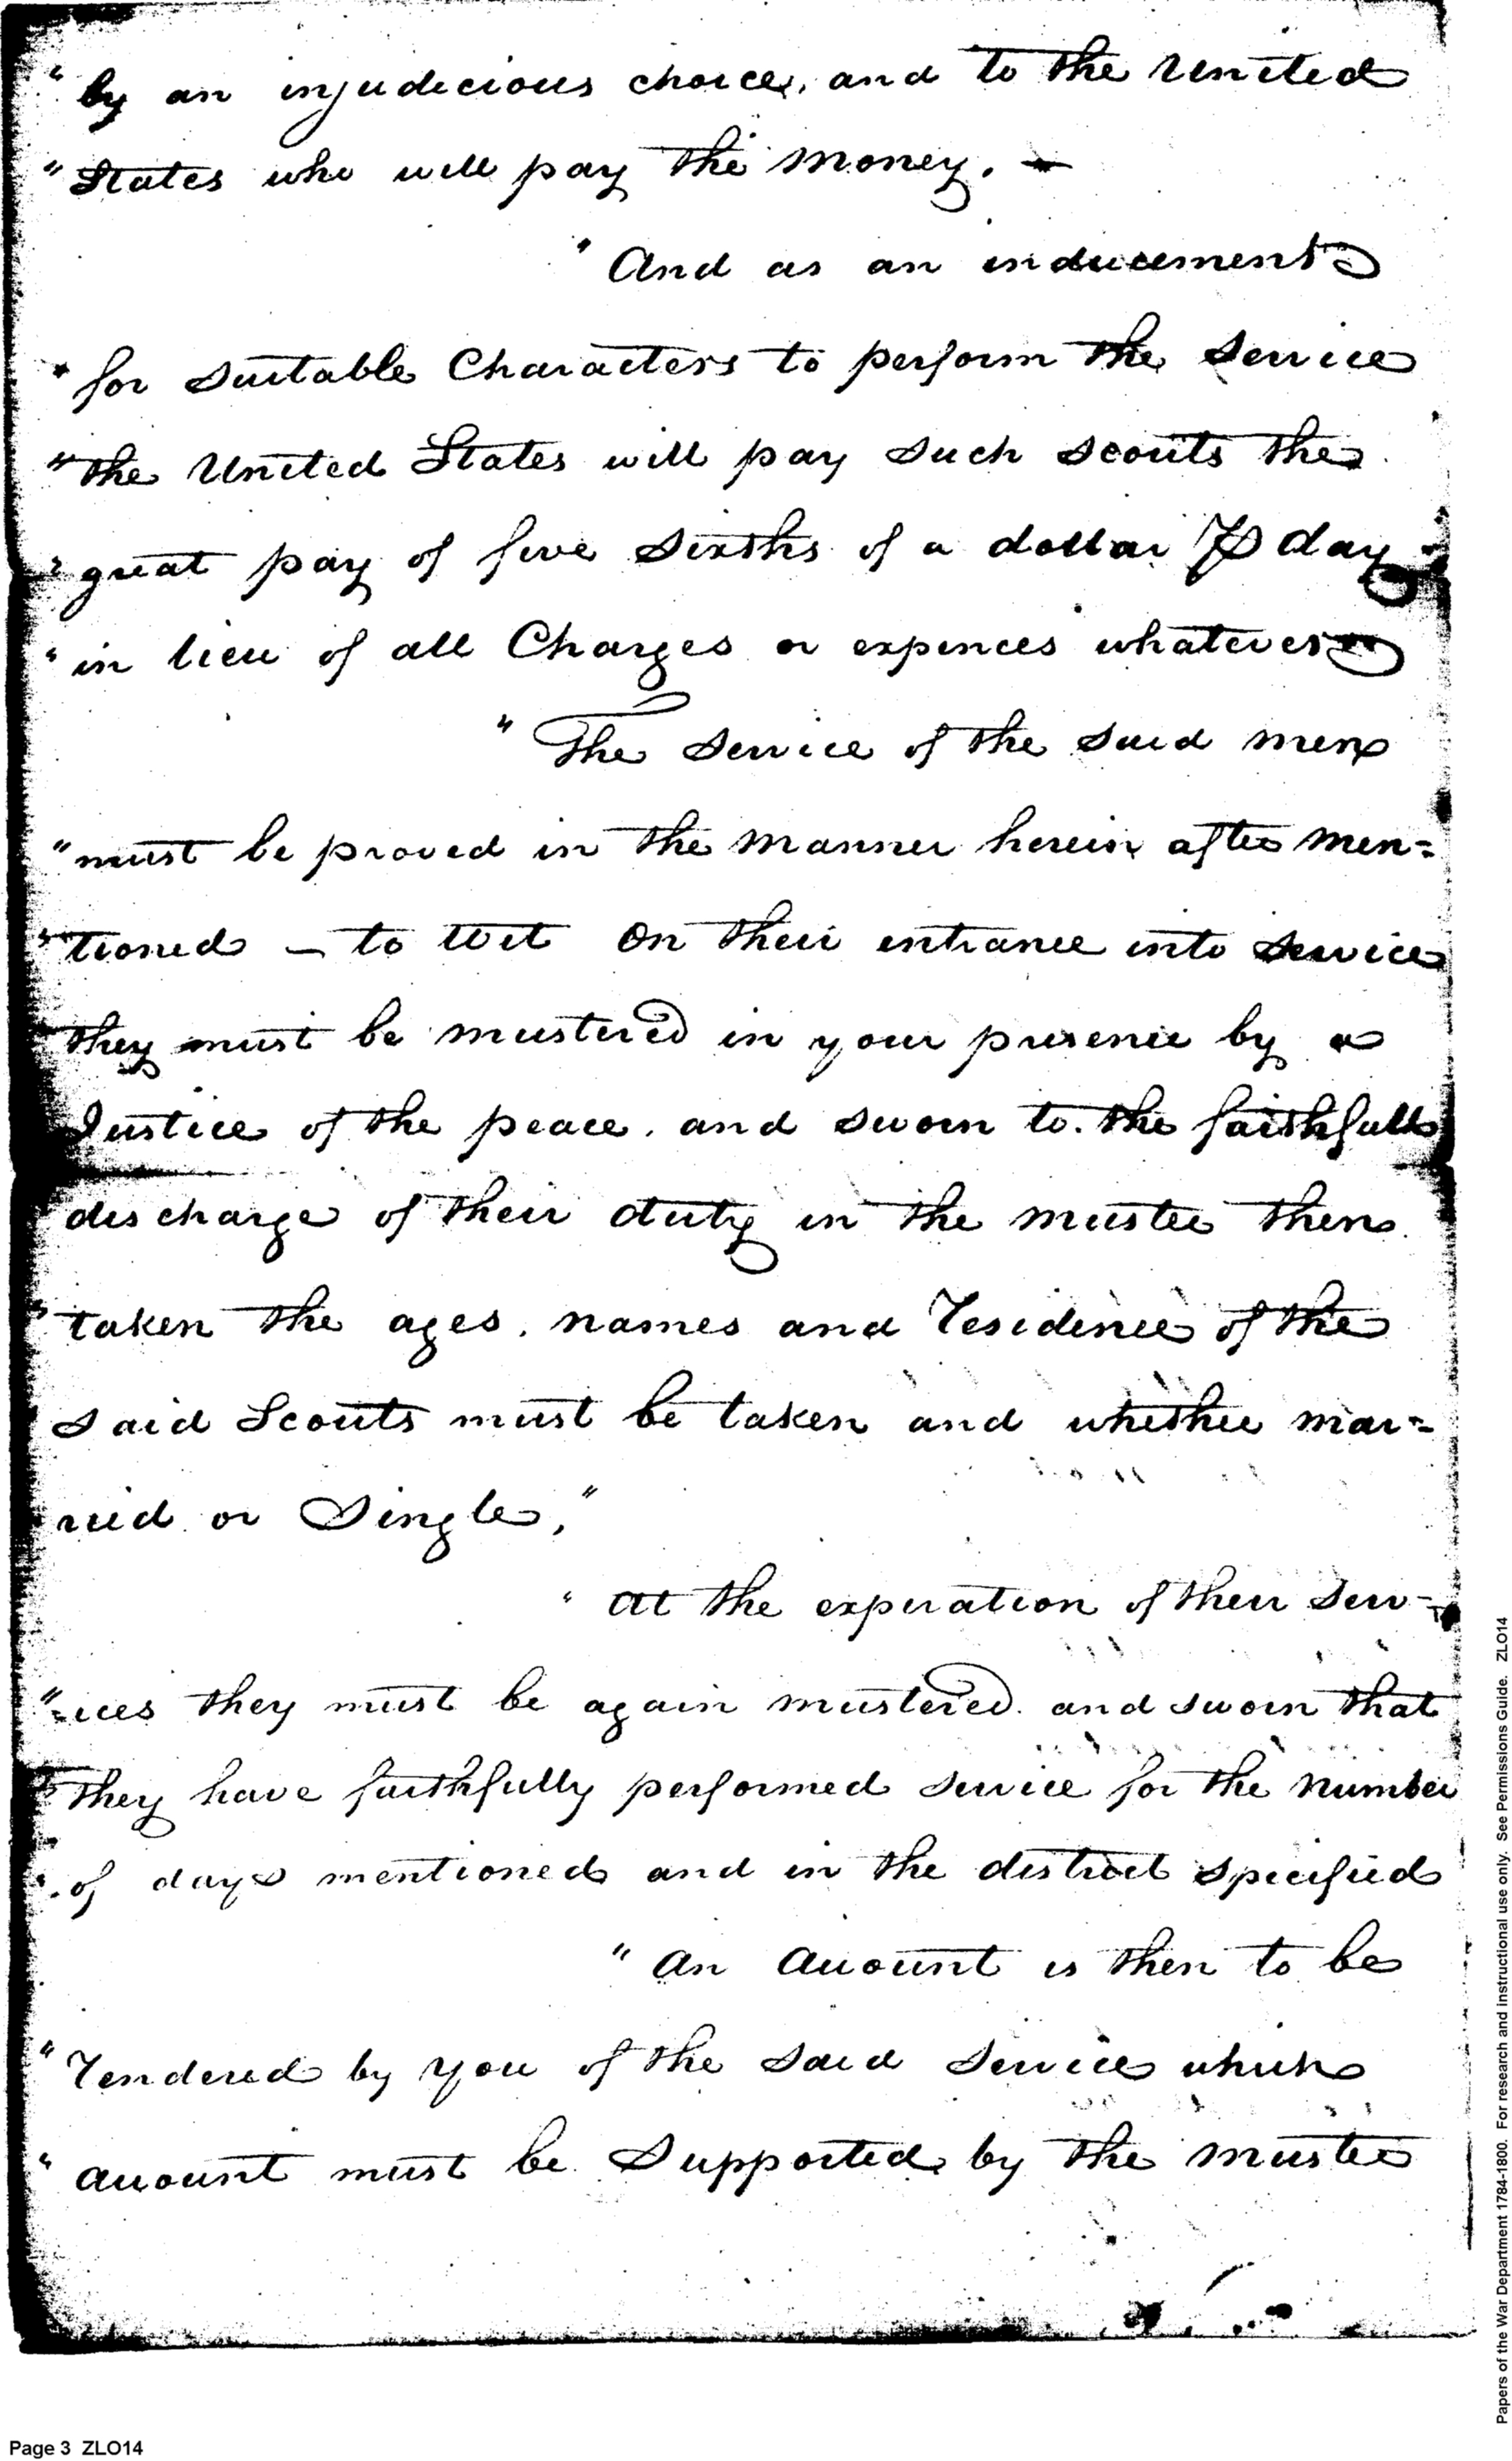 " by an injudicious choice, and to the United
" States who will pay the money. —
" And as an inducement
" for suitable Characters to perform the Service
" the United States will pay such scouts the
" great pay of five sixths of a dollar ⅌ day
" in lieu of all Charges or expences whatever
" The Service of the said men
" must be proved in the manner herein after men=
" tioned — to wit On their entrance into service
they must be mustered in your presence by a
Justice of the peace, and sworn to the faithfull
discharge of their duty in the muster then
" taken the ages, names and residence of the
said Scouts must be taken and whether mar=
ried or Single,"
" At the expiration of their Serv=
"=ices they must be again mustered and sworn that
" they have faithfully performed service for the number
" of days mentioned and in the district specified
" An account is then to be
" rendered by you of the said service which
" account must be Supported by the muster
Page 3 ZLO14
Papers of the War Department 1784-1800. For research and instructional use only. See Permissions Guide. ZLO14